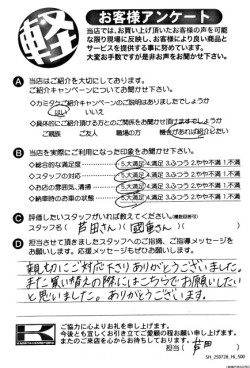 軽
お客様アンケート
当店では、お買い上げ頂いたお客様の声を可能
な限り現場に反映し、お客様により良い商品と
サービスを提供する事に努めています。
大変お手数ですが是非お声をお聞かせ下さい。
A 当店はご紹介を大切にしております。
ご紹介キャンペーンについてお聞かせ下さい。
◇カミタケご紹介キャンペーンのご説明はありましたでしょうか
はい いいえ
◇具体的にご紹介頂ける方とのご関係をお聞かせ頂けますでしょうか
ご親族 ご友人 職場の方 機会があれば紹介したい
B 当店を実際にご利用になった印象をお聞かせ下さい。
◇総合的な満足度 5.大満足 4.満足 3.ふつう 2.やや不満 1.不満
◇スタッフの対応 5.大満足 4.満足 3.ふつう 2.やや不満 1.不満
◇お店の雰囲気、清掃 5.大満足 4.満足 3.ふつう 2.やや不満 1.不満
◇納車時のお車の状態 5.大満足 4.満足 3.ふつう 2.やや不満 1.不満
C 評価したいスタッフがいれば教えてください。(複数回答可)
スタッフ名 ( 芦田さん ) ( 國重さん ) ( )
D 担当させて頂きましたスタッフへのご指摘、ご指導メッセージを
お願いします。応援メッセージもぜひお待ちしております。
親切にご対応下さりありがとうございました。
また買い替えの際にはこちらでお願いしたい
と思いました。ありがとうございます。
ご協力に心よりお礼を申し上げます。
今後とも宜しくお引き立てご愛顧の程お願い申し上げます。
またのご来店を心からお待ちしております。
担当 ( 芦田 )
SH_250728_HI_500